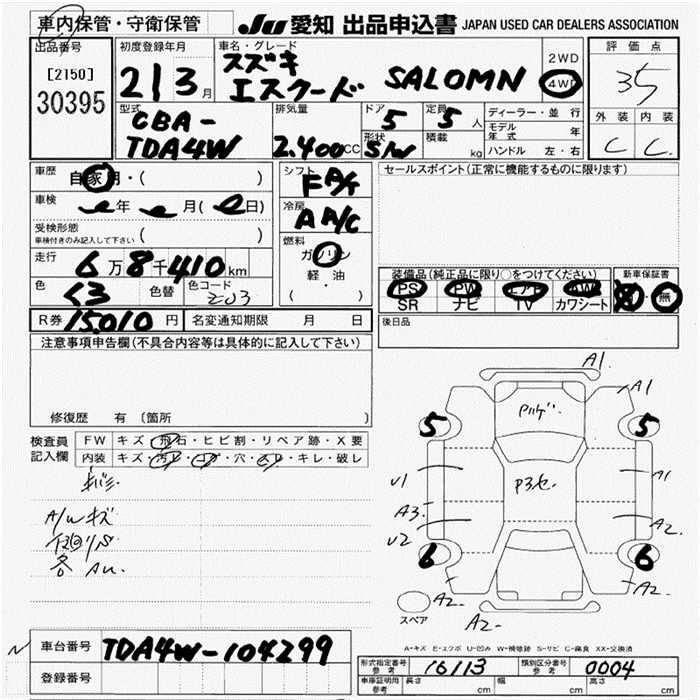 車内保管・守衛保管 JU 愛知 出品申込書 JAPAN USED CAR DEALERS ASSOCIATION
出品番号 初度登録年月 車名・グレード 2WD 評価点
[2150] 21 3月 スズキ 4WD 35
30395 エスクード SALOMN
型式 排気量 ドア 定員 ディーラー・並行 外装 内装
CBA- 5 5人 モデル年式 年 C C
TDA4W 2.400cc 形状 S/W 積載 kg ハンドル 左・右
車歴 自家用・( ) シフト FA/4 セールスポイント(正常に機能するものに限ります)
車検 年 月( 日) 冷房 AA/C
受検形態
車検付きのみ記入して下さい ( ) 燃料
走行 6万8千410km ガソリン
軽油
( ・ )
色 クロ 色替 色コード ZJ3
装備品(純正品に限り○をつけてください) 新車保証書
PS PW エアB AW 有 無
SR ナビ TV カワシート
R券 15,010円 名変通知期限 月 日 後日品
注意事項申告欄(不具合内容等は具体的に記入して下さい)
修復歴 有 (箇所
検査員 FW キズ・飛石・ヒビ割・リペア跡・X要
記入欄 内装 キズ・汚レ・コゲ・穴・スレ・キレ・破レ
A/Wキズ
A1
A1
Pハゲ
5 5
U1 P3セ A1
A3
U2 A2
6 6
A2 A2
A2
スペア
A-キズ E-エクボ U-凹み W-補修跡 S-サビ C-腐食 XX-交換済
車台番号 TDA4W-104299
登録番号
形式指定番号 参考 16113 類別区分番号 参考 0004
車庫証明用 参考 長さ cm 幅 cm 高さ cm